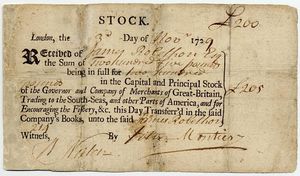 STOCK.
£200
London, the 3d Day of Novr 1729
Received of James Robethon Esq
the Sum of Two hundred five pounds
being in full for two hundred
pounds in the Capital and Principal Stock £205
of the Governor and Company of Merchants of Great-Britain,
Trading to the South-Seas, and other Parts of America, and for
Encouraging the Fishery, &c. this Day Transferr'd in the said
Company's Books, unto the said James Robethon
Witness, By
Peter Montier